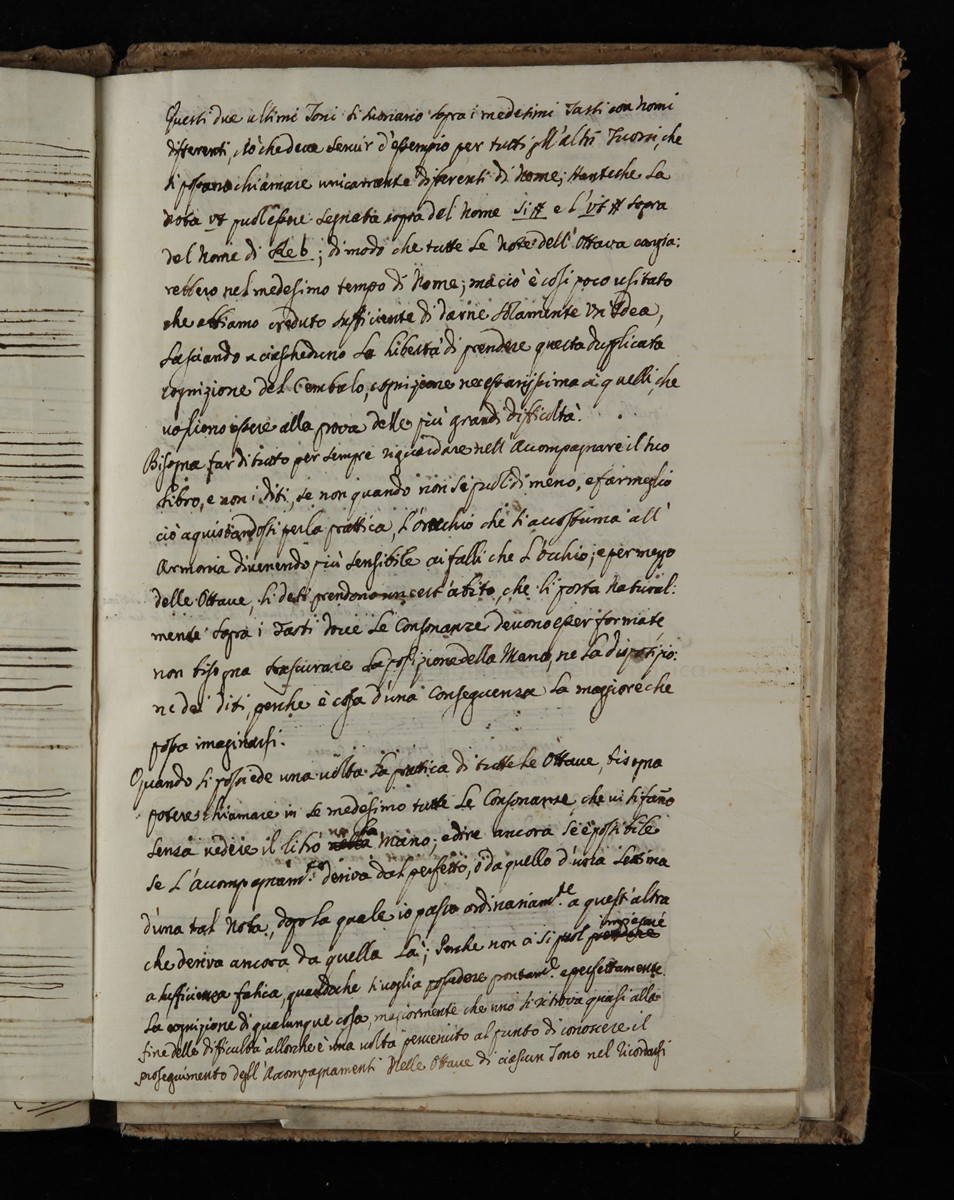 Questi due ultimi Toni si suonano sopra i medesimi Tasti con Nomi
differenti, ciò che deve servir d'essempio per tutti gl'altri Tuoni, che
si possono chiamare unicamente differenti di Nome; stanteche La
Nota vt può essere segnata sopra del Nome Si # e L'vt # sopra
del Nome di Re b; di modo che tutte Le Note dell'Ottava cangia:
rebbero nel medesimo tempo di Nome; ma ciò è cosi poco usitato
che abbiamo creduto sufficiente di darne solamente un Idea,
Lasciando a ciascheduno La Libertà di prendere questa duplicata
cognizione del Cembalo, cognizione necessarijssima à quelli, che
vogliono essere alla prova delle più grandi difficoltà.
Bisogna far di tutto per sempre riguardare nell'Accompagnare il suo
Libro, e non i diti, se non quando non se può di meno, e far meglio
ciò aquistandosi per la prattica, L'orecchio che si accostuma all'
Armonia divenendo più sensibile ai falli che L'occhio; e per mezzo
delle Ottave, li deti prendono un cert'abito, che li porta Natural:
mente sopra i Tasti dove Le Consonanze devono esser formate,
non bisogna trascurare La posizione della Mano, ne La disposizio:
ne dei diti, perche è cosa d'una Conseguenza La maggiore che
possa imaginarsi.
Quando si possiede una volta La prattica di tutte Le Ottave, bisogna
potere chiamare in se medesimo tutte Le Consonanze, che vi si fan̄o
senza vedere il libro ne La Mano; e dire ancora se è possibile
se L'accompagnam.to deriva dal perfetto, ò da quello d'una Settima
d'una tal Nota, dopo La quale io passo ordinariam.te a quest'altra
che deriva ancora da quella Là; Perche non ci si può impiegare
a sufficienza fatica, quandoche si voglia possedere prontam.e e perfettamente
La cognizione di qualunque cosa, maggiormente che uno si ritrova quasi alla
fine delle difficultà allorche è una volta pervenuto al punto di conoscere il
proseguimento degl'Accompagnamenti Nelle Ottave di ciascun Tono nel ricordarsi